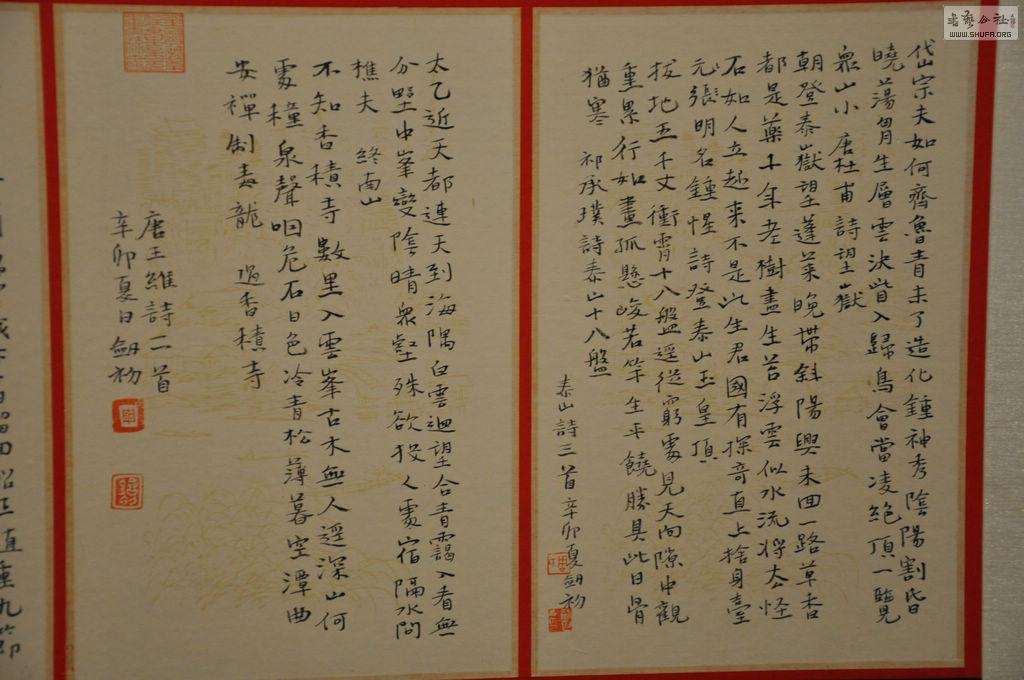 岱宗夫如何齊魯青未了造化鍾神秀陰陽割昏
曉蕩胷生層雲決眥入歸鳥會當凌絕頂一覽
衆山小 唐杜甫詩望嶽
朝登泰嶽望蓬萊晚帶斜陽興未回一路草香
都是藥千年老樹盡生苔浮雲似水流將去怪
石如人立起來不是此生君國有探奇直上捨身臺
元張明名鍾惺詩登泰山玉皇頂
拔地五千丈衝霄十八盤逕從窮處見天向隙中觀
重累行如畫孤懸峻若竿生平饒勝具此日骨
猶寒 祁承㸁詩泰山十八盤
泰山詩三首辛卯夏劒初
太乙近天都連天到海隅白雲迴望合青靄入看無
分野中峯變陰晴衆壑殊欲投人處宿隔水問
樵夫 終南山
不知香積寺數里入雲峯古木無人逕深山何
處橦泉聲咽危石日色冷青松薄暮空潭曲
安禪制毒龍 過香積寺
唐王維詩二首
辛卯夏日劒初
書藝公社
WWW.SHUFA.ORG